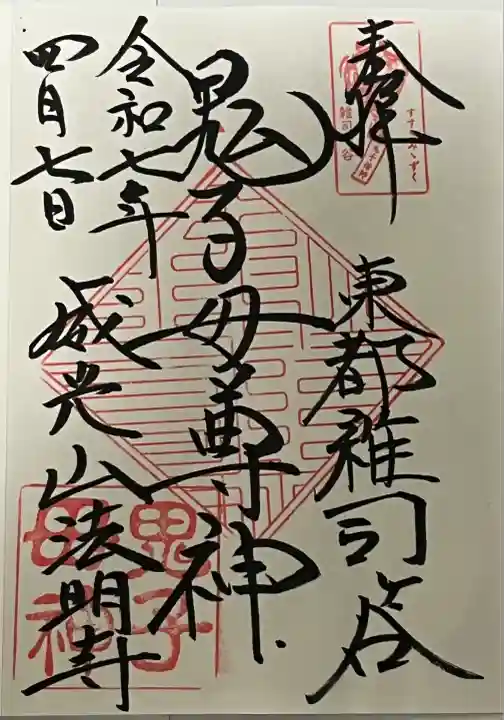 奉拝
東都雑司谷
鬼子母尊神
令和七年
四月七日
威光山法明寺
すすきみゝずく
雑司谷
鬼子
母神